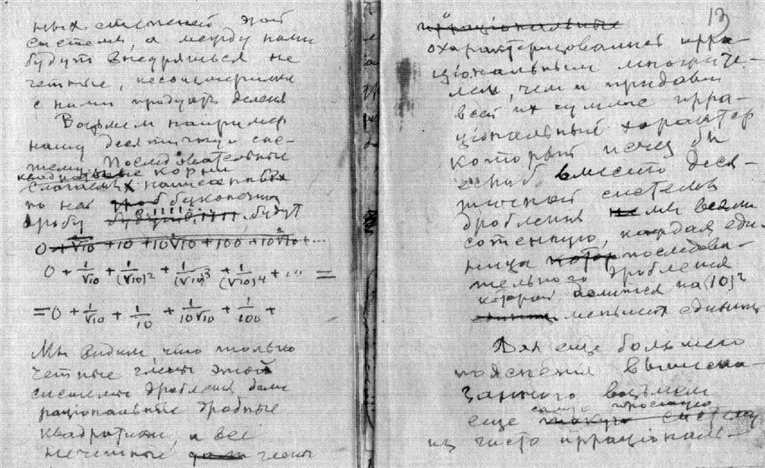 ных степеней этой
системы, а между ними
будут внедряться не
четные, несоизмеримые
с ними продукты деления
Возьмем например
нашу десятичную сис-
тему. Последовательные
квадратные корни
слагаемых написанных
по ней бесконечной
дробу будут
0 + √10 + 10 + 10√10 + 100 + 10²√10 + ...
0 + 1/√10 + 1/(√10)² + 1/(√10)³ + 1/(√10)⁴ + ... =
= 0 + 1/√10 + 1/10 + 1/10√10 + 1/100 +
Мы видим что только
четные члены этой
системы дробления дали
рациональные дробные
квадратики, а все
нечетные дали члены
13
ирраціональные
охарактеризовались ирра-
ціональным множите-
лем, чем и придали
всей их сумме ирра-
ціональный характер
который исчез бы
если б вместо деся-
тичной системы
дробления мы взяли
сотенную, каждая еди-
ница котор последова-
тельного дробления
которой делится на (10)²
единиц меньших единиц
Для еще большего
пояснения вышеска-
занного возьмем
еще самую простую
такую систему
из чисто ирраціональ-